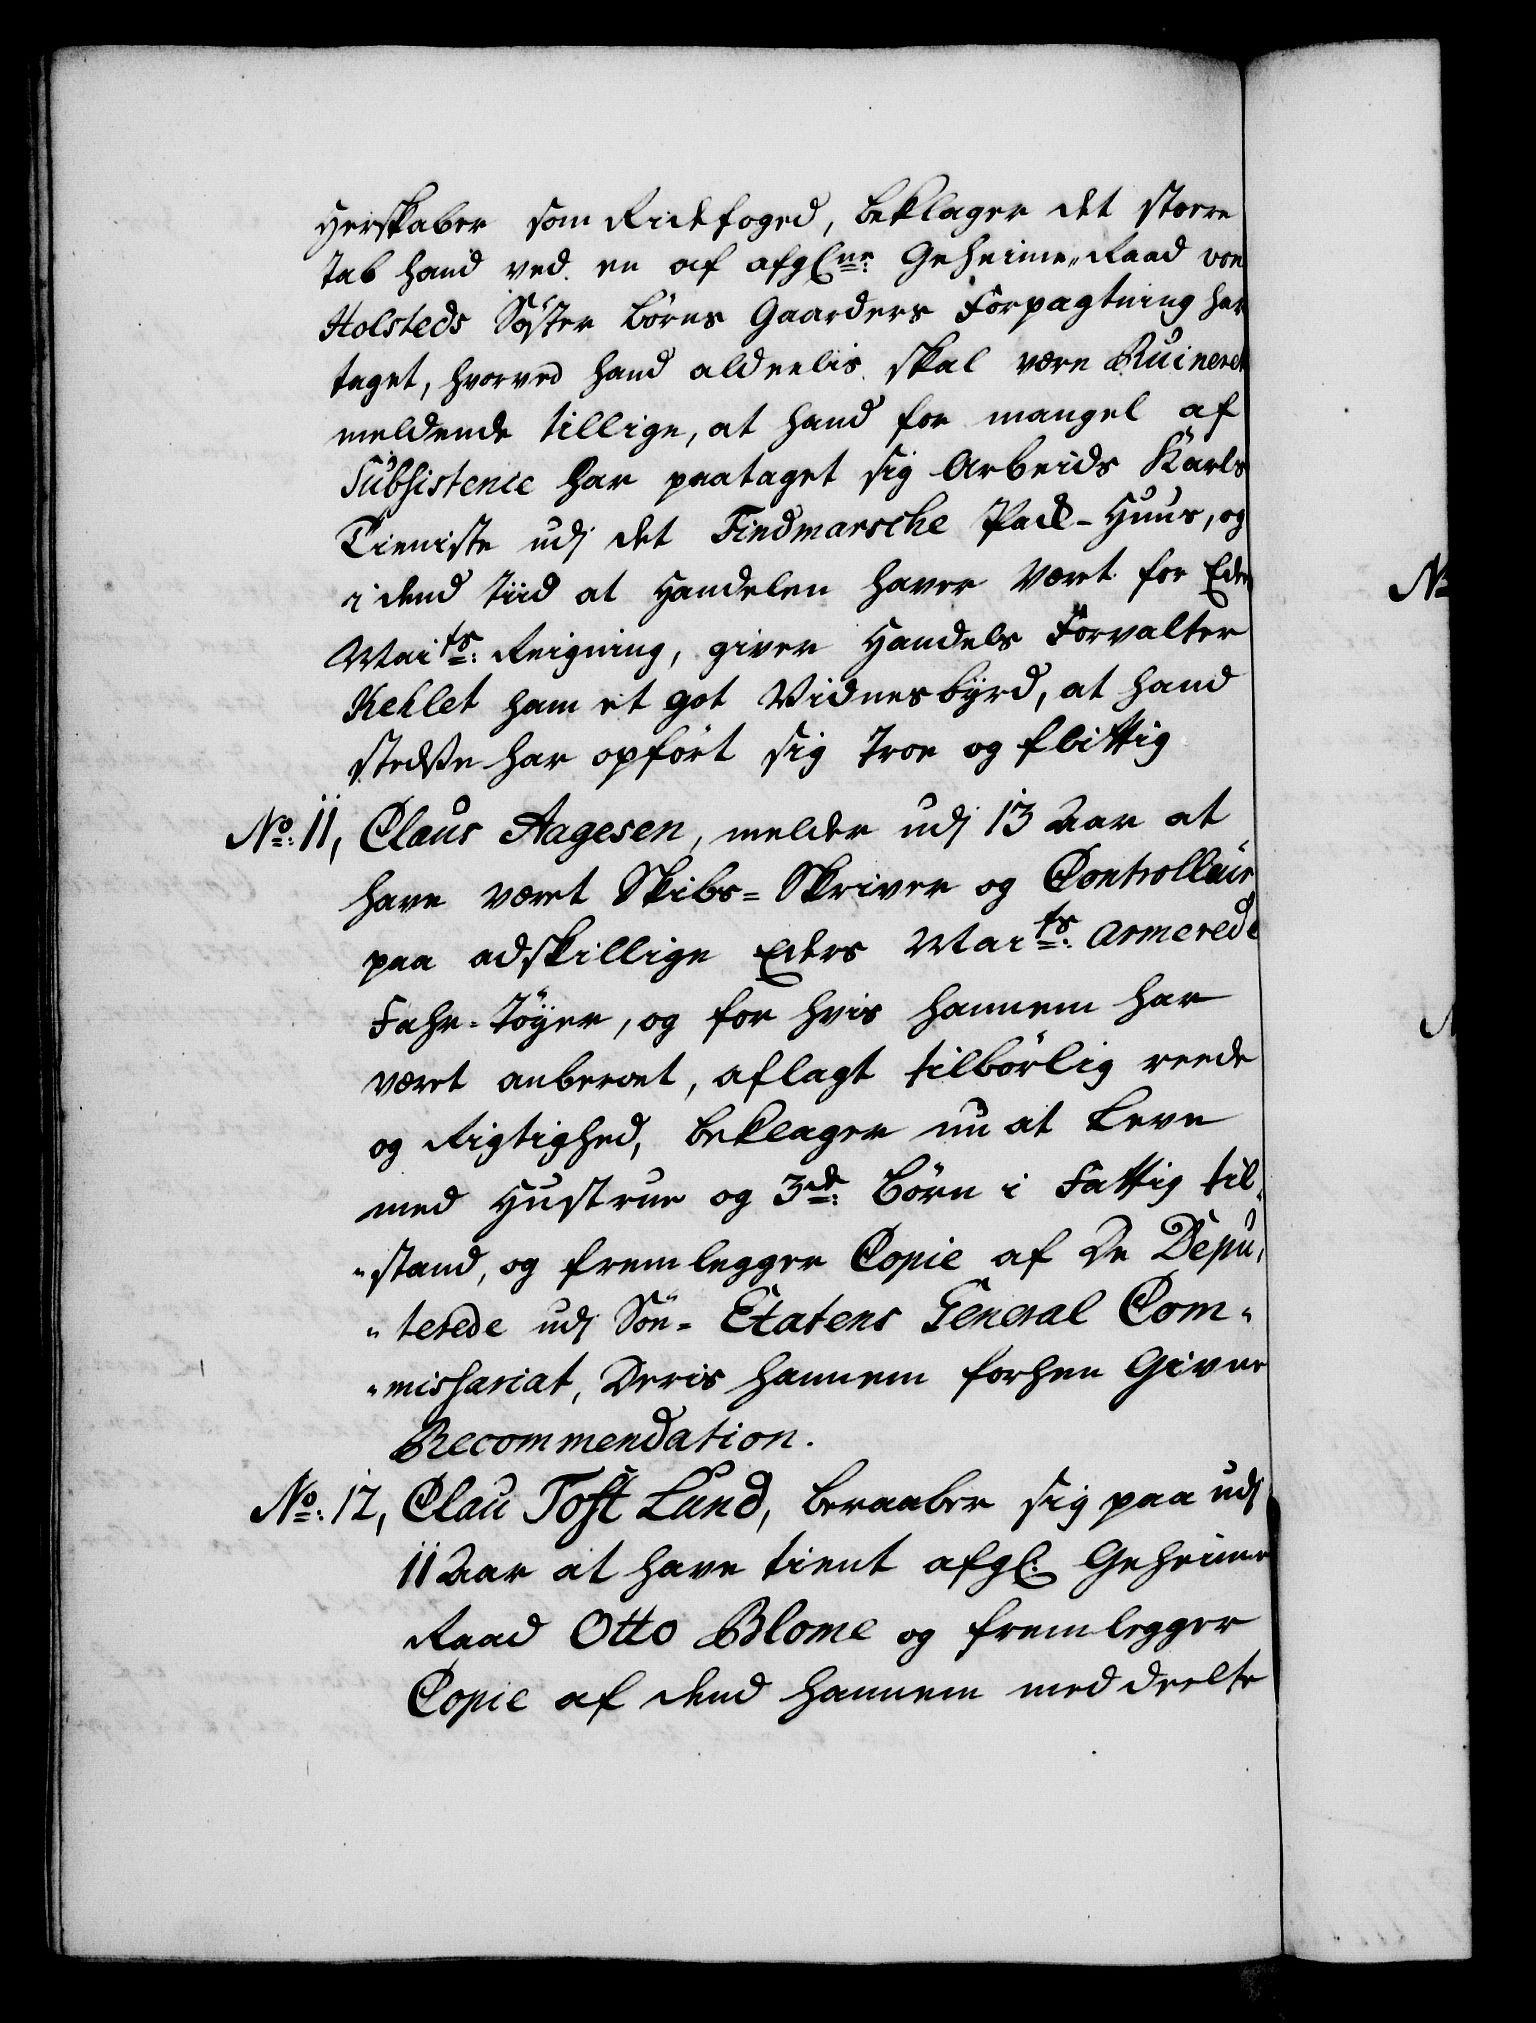 Herskaber som Ridefoged, beklager det större
Tab hand ved en af afgl:ne Geheime-Raad von
Holsteds Söster börns Gaarders Forpagtning har
taget, hvorved hand aldeelis skal være Ruineret
meldende tillige, at hand for mangel af
Subsistence har paataget sig Arbeids Karls
Tieniste udj det Findmarsche Pack-Huus, og
i dend tiid at Handelen haver været for Eders
Maits: Reigning, giver Handels Forvalter
Kehlet ham et got Vidnesbyrd, at hand
stedsse har opfört sig troe og flittig
No: 11, Claus Aagesen, melder udj 13 Aar at
have været Skibs-Skriver og Controlleur
paa adskillige Eders Maits: armerede
Fahr-Töyer, og for hvis hannem har
været anbetroet, aflagt tilbörlig reede
og Rigtighed, beklager nu at leve
med Hustrue og 3de: börn i Fattig til-
-stand, og fremlegger Copie af De Depu-
-terede udj Söe-Etatens General Com-
-missariat, Deris hannem forhen Givne
Recommendation.
No: 12, Clau Toft Lund, beraaber sig paa udj
11 Aar at have tient afgl: Geheime
Raad Otto Blome og fremlegger
Copie af dend hannem meddeelte